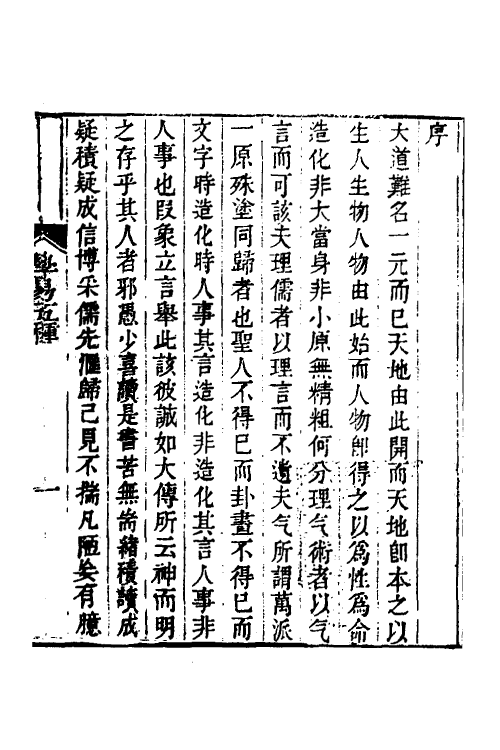 序
大道難名一元而已天地由此開而天地卽本之以
生人生物人物由此始而人物卽得之以爲性爲命
造化非大當身非小原無精粗何分理气術者以气
言而可該夫理儒者以理言而不遺夫气所謂萬派
一原殊塗同歸者也聖人不得已而卦畫不得已而
文字時造化時人事其言造化非造化其言人事非
人事也叚象立言舉此該彼誠如大傳所云神而明
之存乎其人者邪憑少喜讀是書苦無耑緒積讀成
疑積疑成信博采儒先滙歸己見不揣凡陋妄有臆
學易五種
一